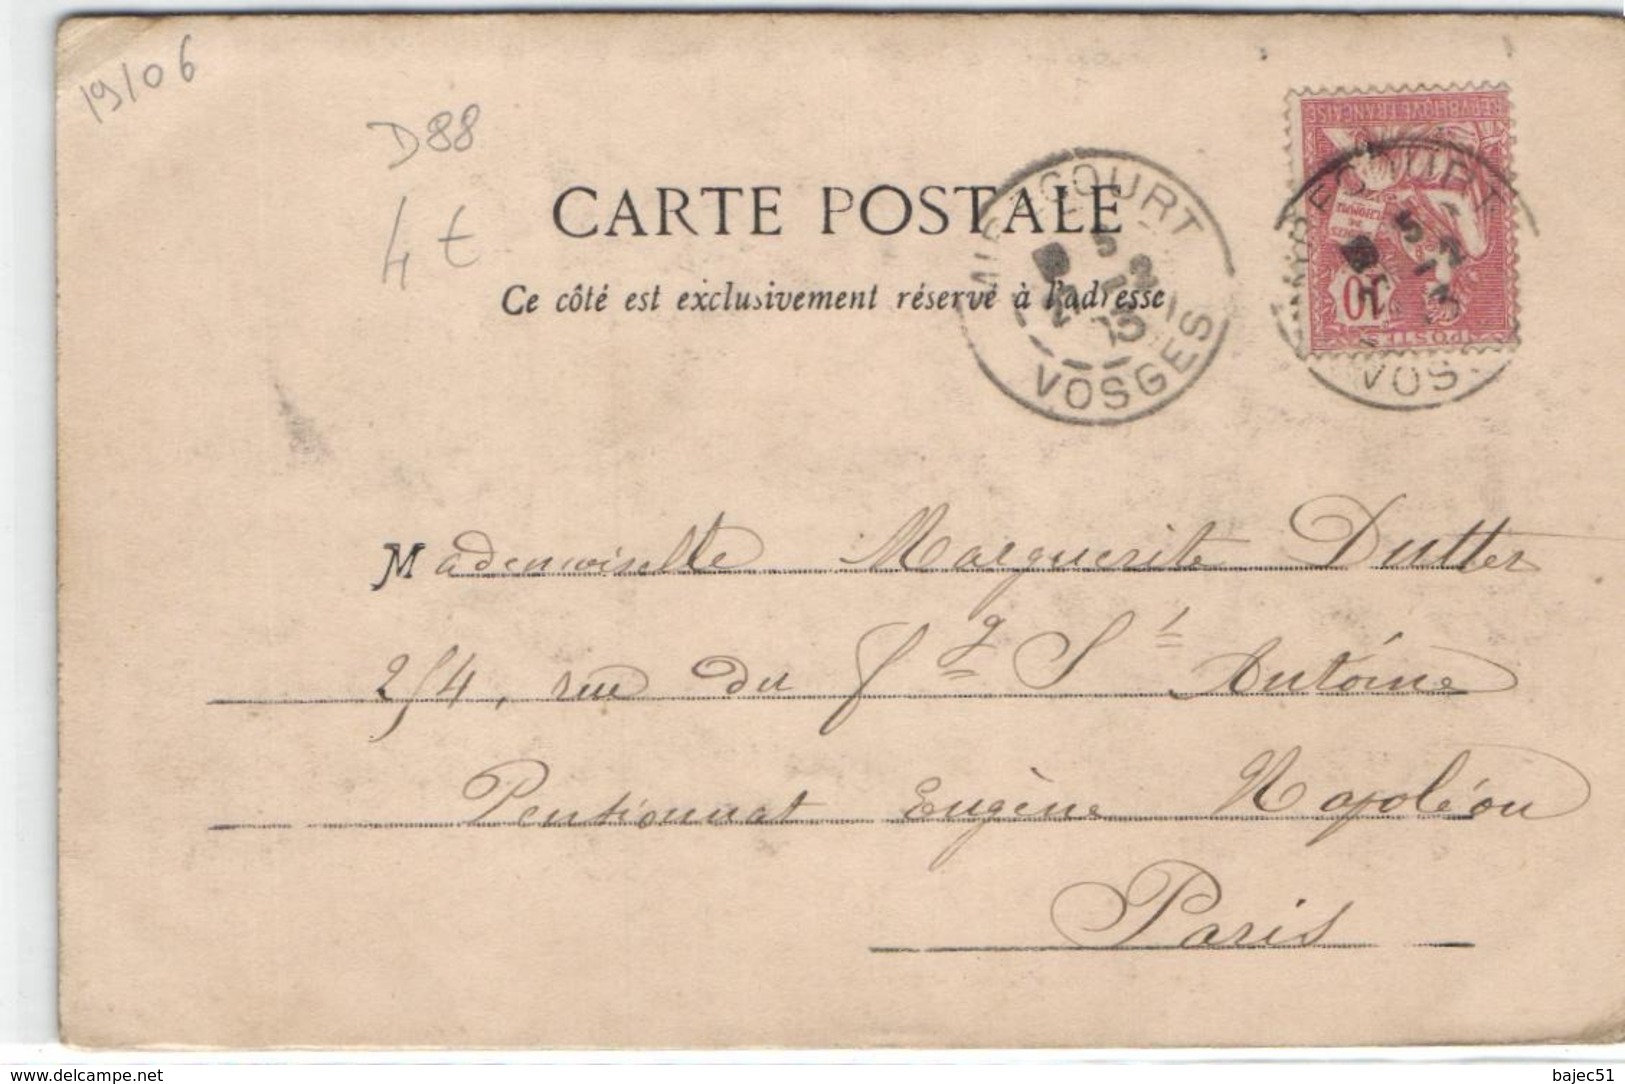 19/06
D88
4€
CARTE POSTALE
Ce côté est exclusivement réservé à l'adresse
MIRECOURT
VOSGES
REPUBLIQUE FRANÇAISE
10
POSTES
MIRECOURT
VOS
Mademoiselle Marguerite Dutter
254, rue du fg St Antoine
Pensionnat Eugène Napoléon
Paris
www.delcampe.net
bajec51